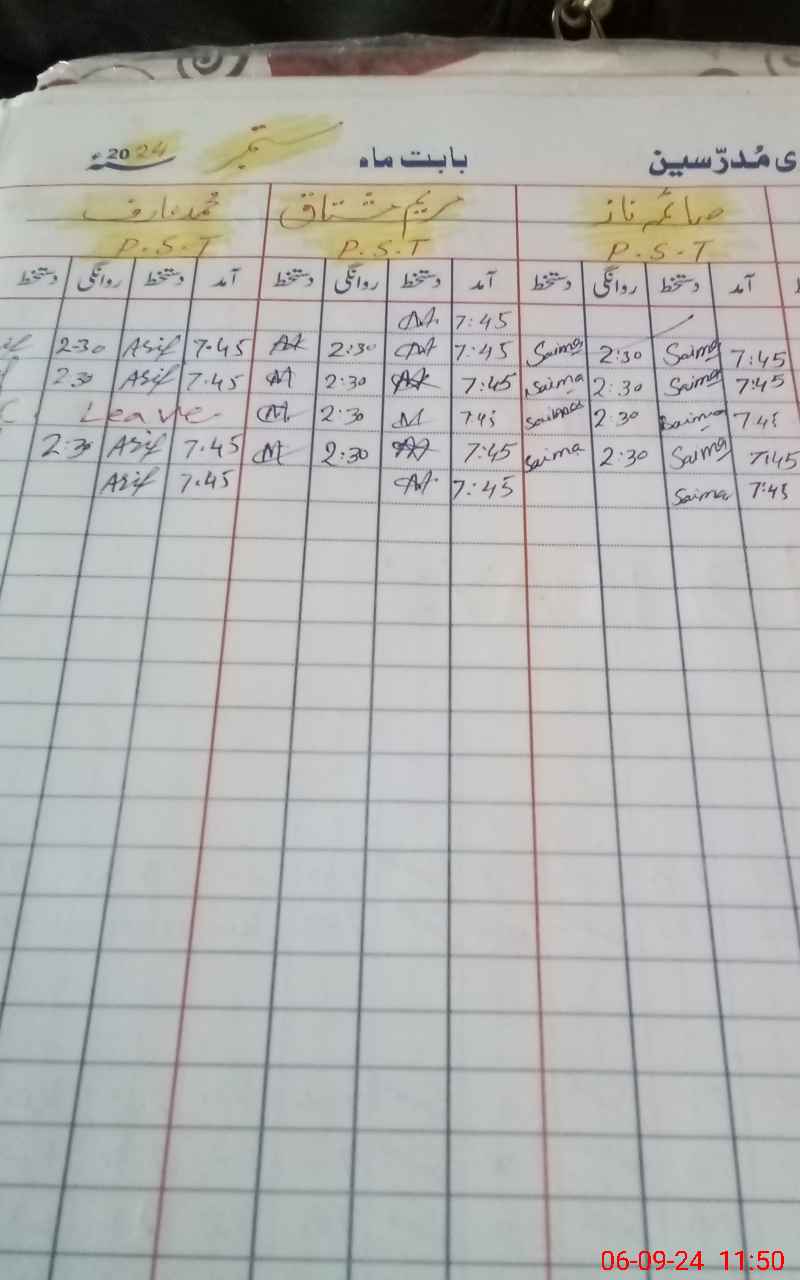 ی مُدرّسین بابت ماہ ستمبر 2024ء
صائمہ ناز مریم مشتاق محمد عارف
P.S.T P.S.T P.S.T
آمد دستخط روانگی دستخط آمد دستخط روانگی دستخط آمد دستخط روانگی دستخط
7:45
7:45 Saima 2:30 Saima 7:45 2:30 7.45 Asif 2:30
7:45 Saima 2:30 Saima 7:45 2:30 7.45 Asif 2:30
7:45 Saima 2:30 Saima 7:45 M 2:30 Leave
7:45 Saima 2:30 Saima 7:45 2:30 M 7.45 Asif 2:30
7:45 Saima 7:45 7.45 Asif
06-09-24 11:50